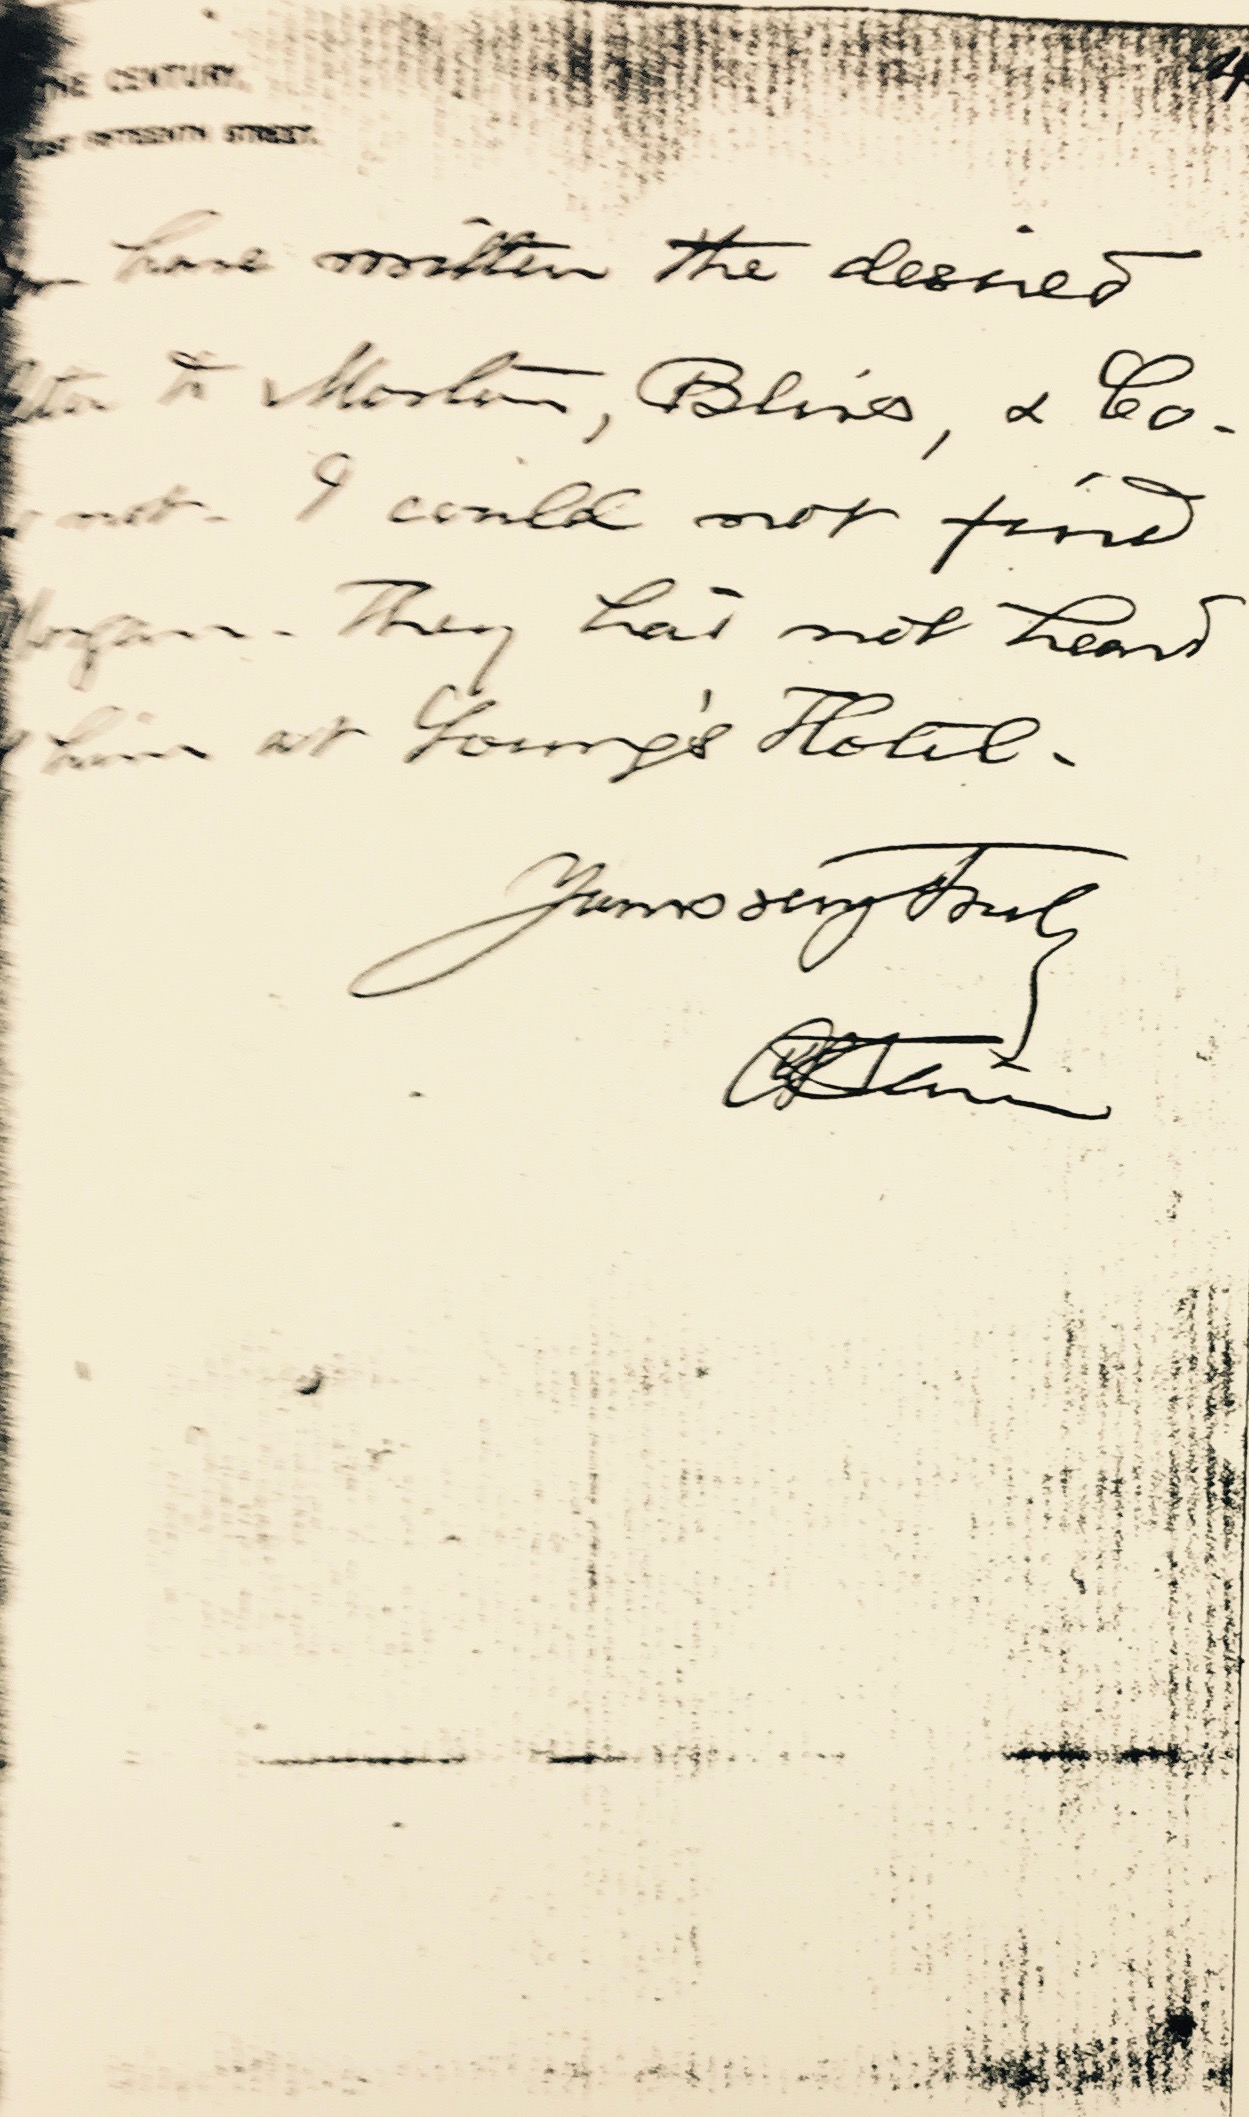 THE CENTURY,
EAST FIFTEENTH STREET.
have written the desired
to Morton, Bliss, & Co.
not. I could not find
Morgan. They had not heard
him at Young's Hotel.
Yours very truly